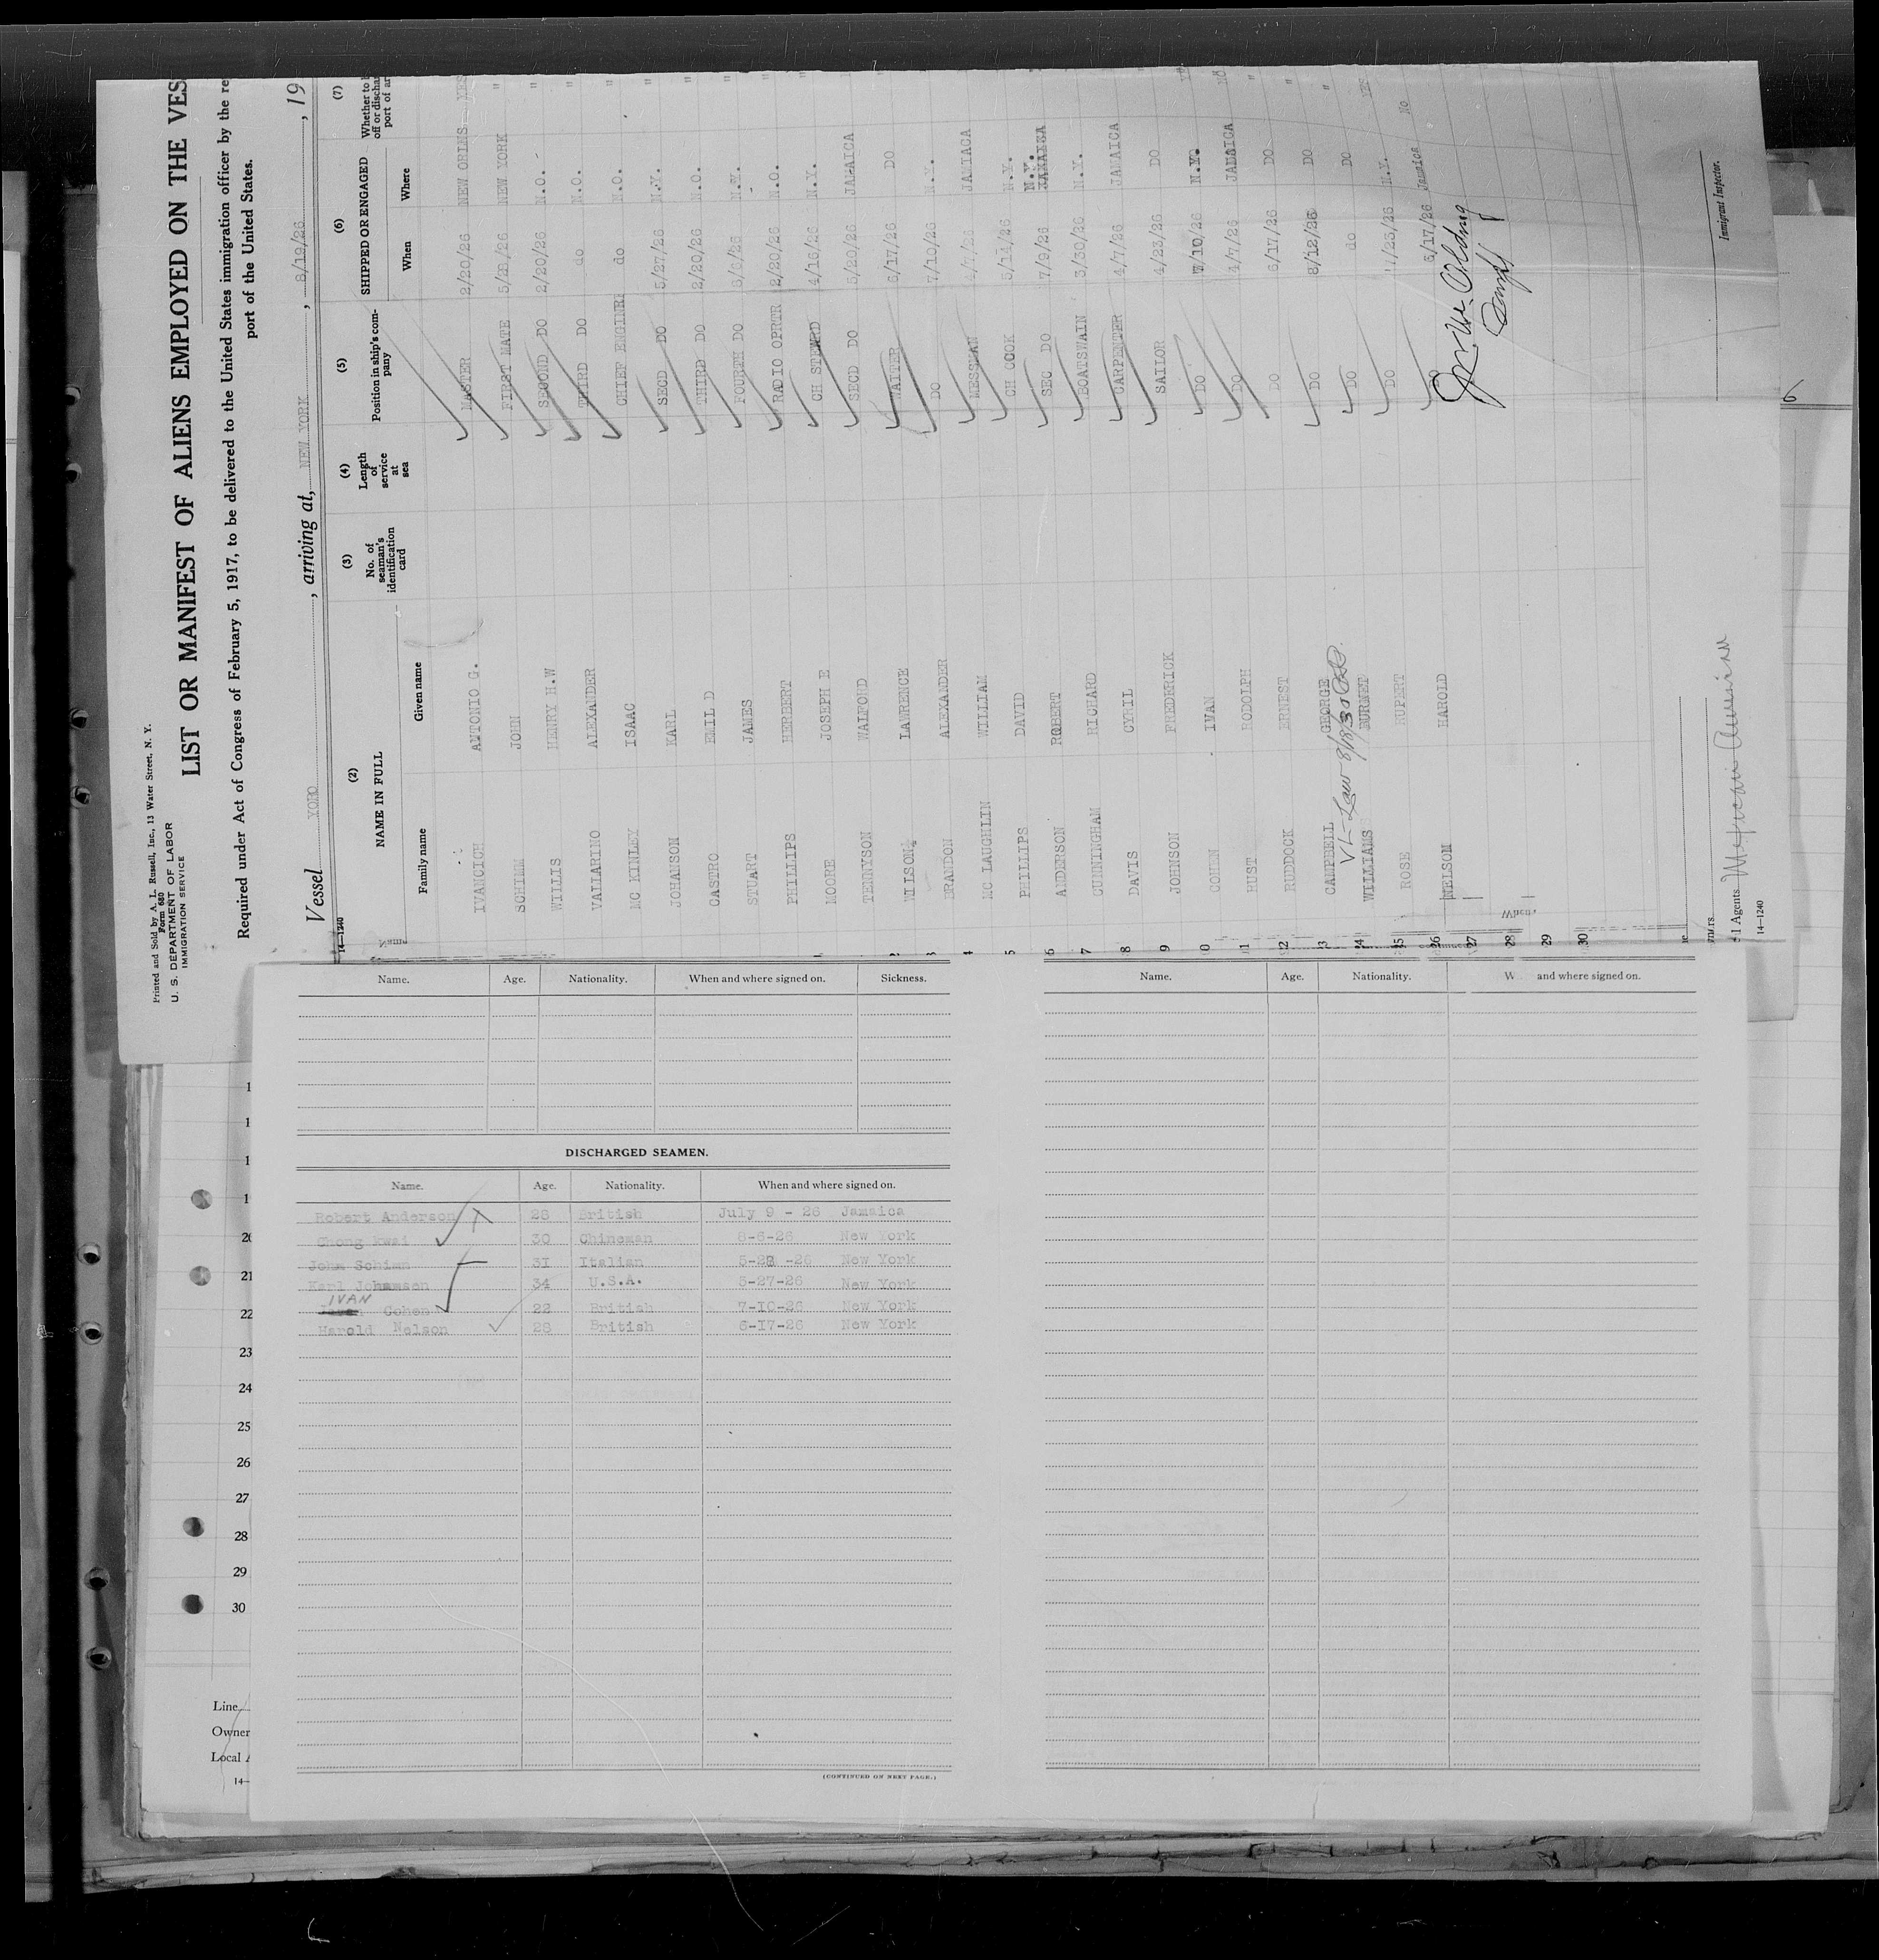 Printed and Sold by A. L. Russell, Inc., 13 Water Street, N. Y.
Form 680
U. S. DEPARTMENT OF LABOR
IMMIGRATION SERVICE
LIST OR MANIFEST OF ALIENS EMPLOYED ON THE VES
Required under Act of Congress of February 5, 1917, to be delivered to the United States immigration officer by the re
port of the United States.
Vessel YORO, arriving at, NEW YORK, 8/19/26, 19
14—1240
(2) (3) (4) (5) (6) (7)
NAME IN FULL No. of seaman's identification card Length of service at sea Position in ship's com-pany SHIPPED OR ENGAGED
Family name Given name When Where
IVANCICH ANTONIO G. MASTER 2/20/26 NEW ORLNS YES
SCHIMM JOHN FIRST MATE NEW YORK "
WILLIS HENRY H.W SECOND DO 2/20/26 N.O. "
VALLARINO ALEXANDER THIRD DO do N.O. "
MC KINLEY ISAAC CHIEF ENGINER do N.O. "
JOHANSON KARL SECD DO 5/27/26 N.Y. "
CASTRO EMIL D THIRD DO 2/20/26 N.O. "
STUART JAMES FOURTH DO N.Y. "
PHILLIPS HERBERT RADIO OPRTR 2/20/26 N.O. "
MOORE JOSEPH E CH STEWRD 4/16/26 N.Y. "
TENNYSON WALFORD SECD DO 5/20/26 JAMAICA
WILSON LAWRENCE WAITER 6/17/26 DO "
BRANDON ALEXANDER DO 7/10/26 N.Y. "
MC LAUGHLIN WILLIAM MESSMAN 4/7/26 JAMIACA "
PHILLIPS DAVID CH COOK 5/14/26 N.Y. "
ANDERSON ROBERT SEC DO 7/9/26 N.Y. "
CUNNINGHAM RICHARD BOATSWAIN 3/30/26 N.Y. "
DAVIS CYRIL CARPENTER 4/7/26 JAMAICA "
JOHNSON FREDERICK SAILOR 4/23/26 DO "
COHEN IVAN DO 7/10/26 N.Y.
HUST RODOLPH DO 4/7/26 JAMAICA NO
RUDDOCK ERNEST DO 6/17/26 DO "
CAMPBELL GEORGE DO 8/12/26 DO "
WILLIAMS BURNET DO do DO "
ROSE RUPERT DO N.Y. YES
NELSON HAROLD DO 6/17/26 Jamaica No
Immigrant Inspector.
Agents
14—1240
Name. Age. Nationality. When and where signed on. Sickness.
Name. Age. Nationality. W and where signed on.
DISCHARGED SEAMEN.
Name. Age. Nationality. When and where signed on.
Robert Anderson 28 British July 9 - 26 Jamaica
Chong kwai 30 Chineman 8-6-26 New York
John Schimn 31 Italian New York
Karl Johanson 34 U.S.A. 5-27-26 New York
IVAN Cohen 22 British 7-10-26 New York
Harold Nelson 28 British 6-17-26 New York
(CONTINUED ON NEXT PAGE.)
21
22
23
24
25
26
27
28
29
30
Line
Owner
Local A
14—